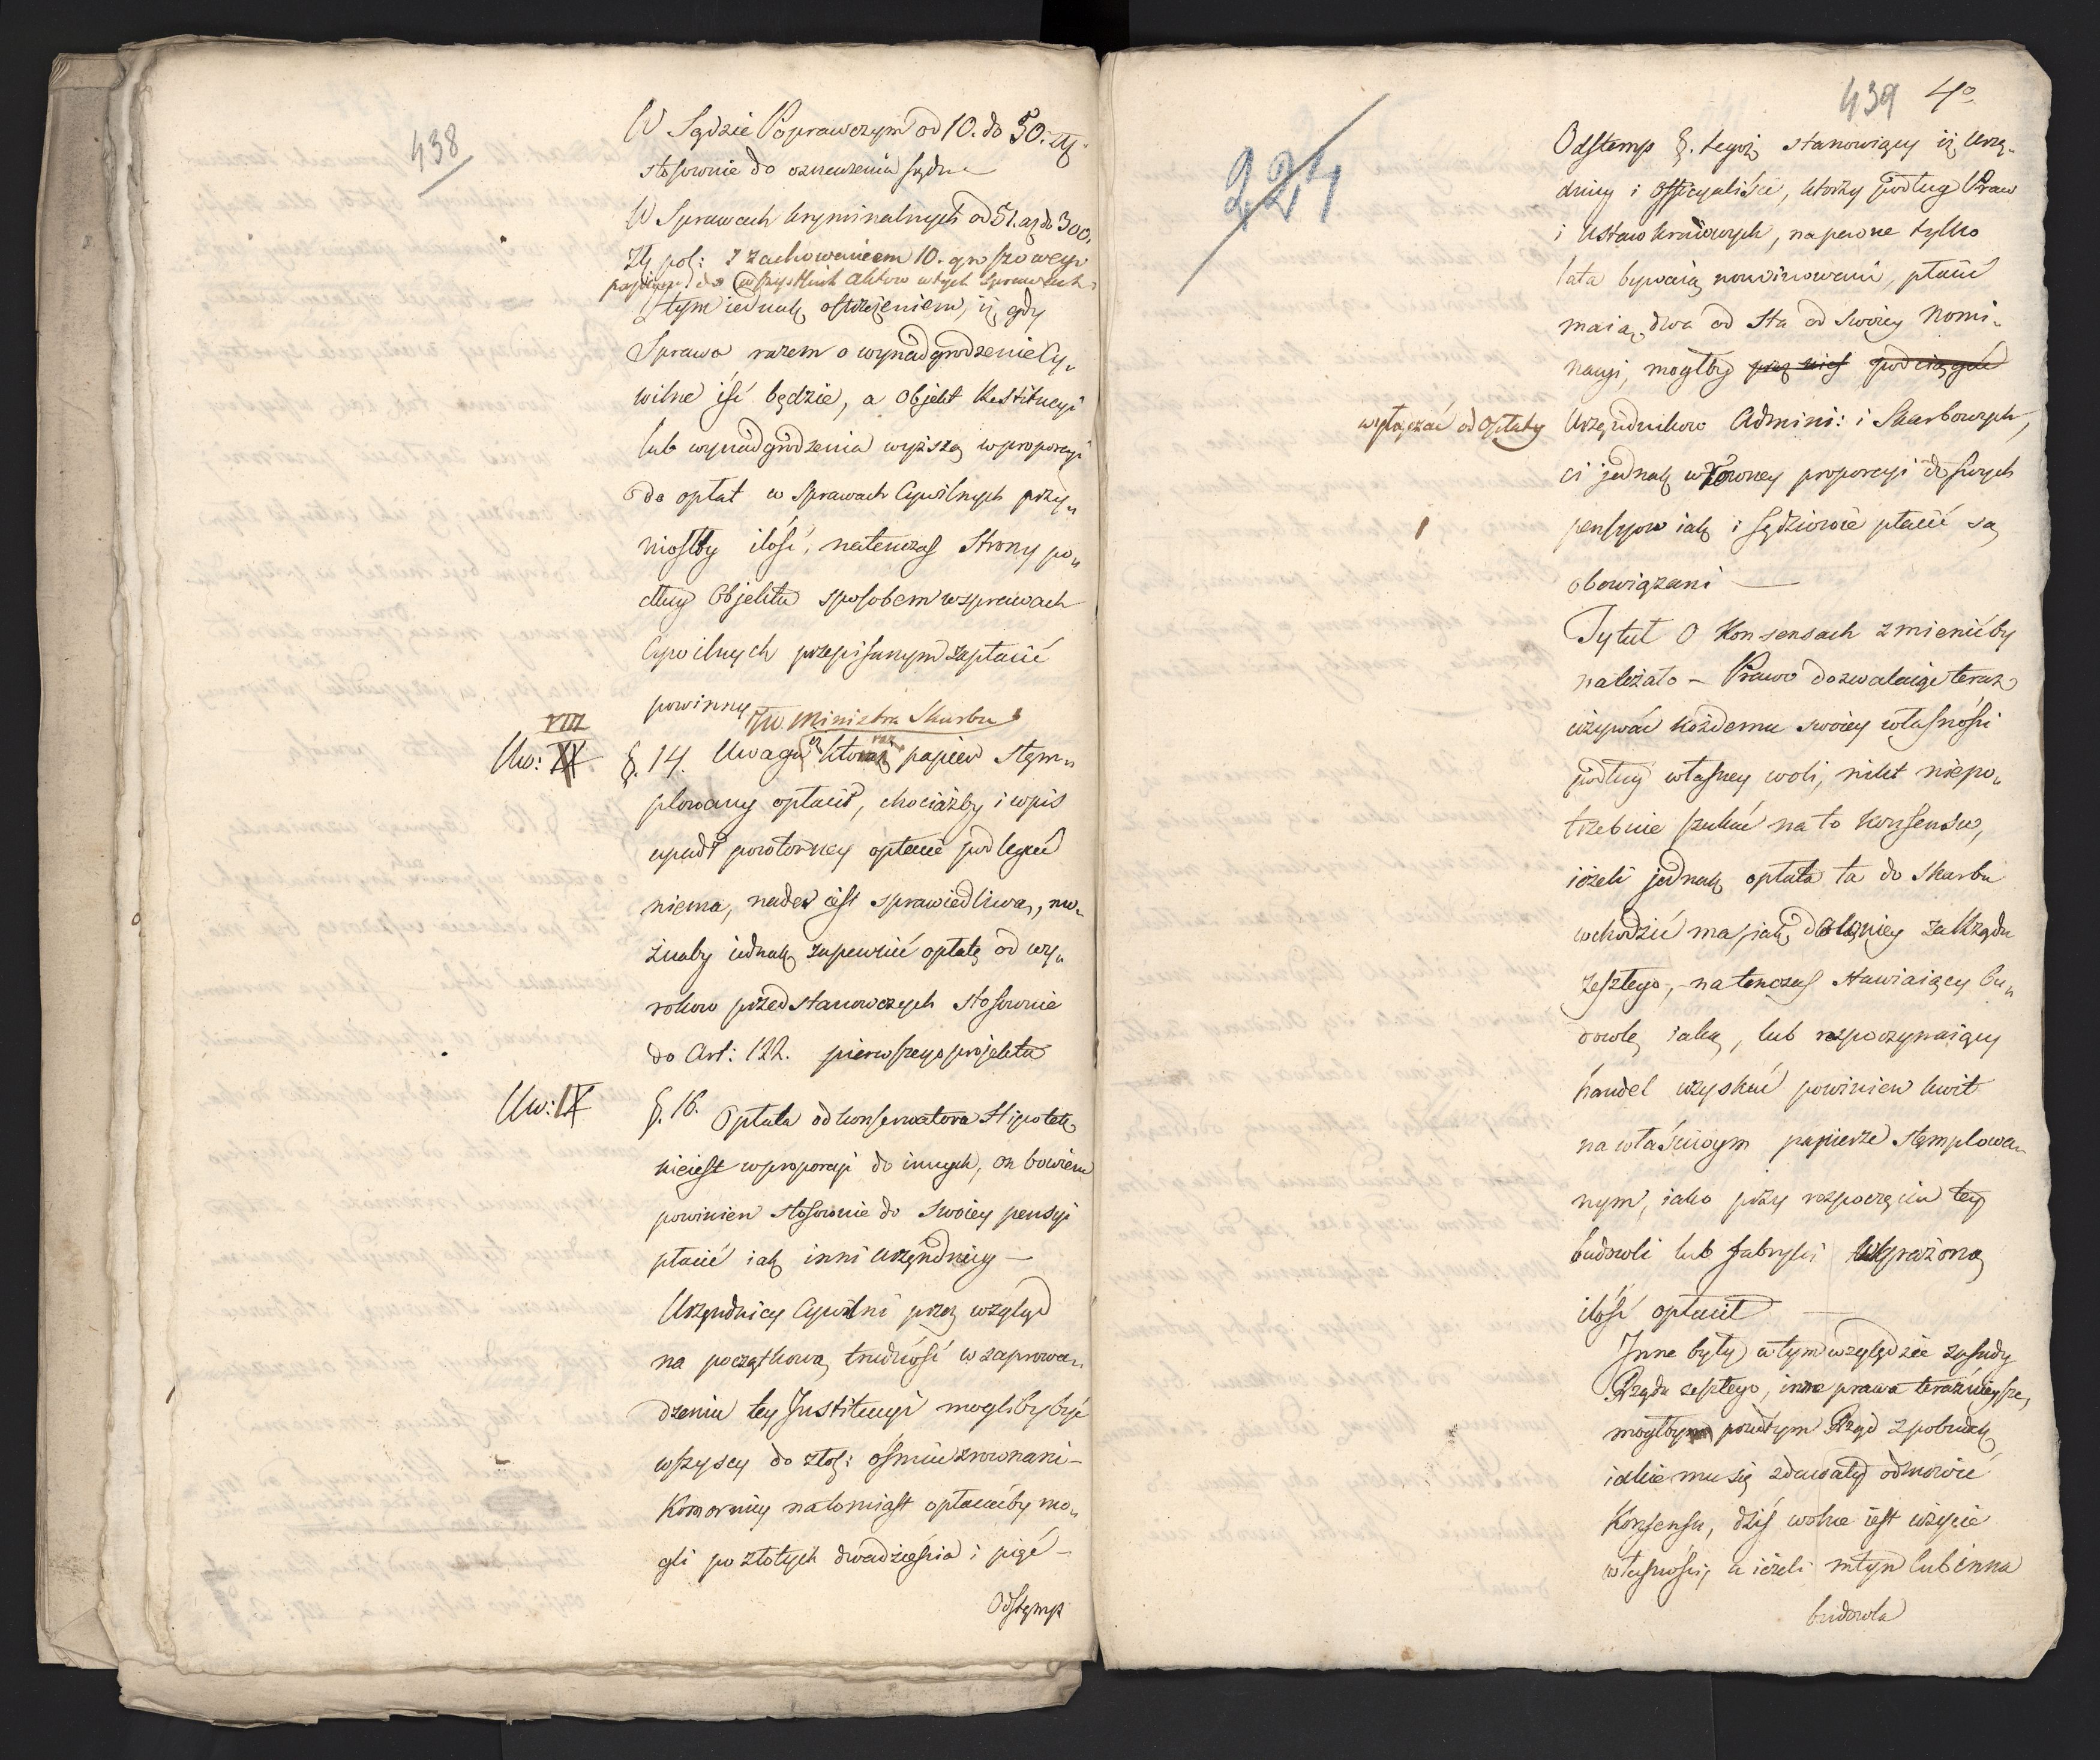 438
W Sądzie Poprawczym od 10. do 50. Zł
stosownie do oznaczenia sądu
W Sprawach kryminalnych od 51. aż do 300.
Zł pol: z zachowaniem 10. groszowego
papieru do wszystkich aktów w tych sprawach
z tym iednak ostrzeżeniem, iż gdy
Sprawa razem o wynadgrodzenie Cy„
wilne iść będzie, a Objekt Restitucyi
lub wynadgrodzenia wyższą w proporcyi
do opłat w Sprawach Cywilnych przy„
niosłby ilość, natenczas Strony po„
dług Objektu sposobem w sprawach
Cywilnych przepisanym zapłacić
powinny
JW. Ministra Skarbu
VIII
Uw: IX §. 14. Uwaga papier stęm„
plowany opłacił, chociażby i wpis
upadł powtórney opłacie podlegać
niema, nader iest sprawiedliwa, mo„
żnaby iednak zapewnić opłatę od wy„
roków przedstanowczych stosownie
do Art: 122. pierwszego projektu
Uw: IX §. 16. Opłata od konserwatora Hipotek
nieiest w proporcyi do innych, on bowiem
powinien stosownie do swoiey pensyi
płacić iak inni Urzędnicy —
Urzędnicy Cywilni przez wzgląd
na początkową trudność w zaprowa„
dzeniu tey Instituycyi mogliby być
wszyscy do złol: ośmiu zrownani —
Komornicy natomiast opłacaćby mo„
gli po złotych dwadzieścia i pięć —
Odstęmp
439 4°
224
Odstemp §. tegoż stanowiący iż Urzę„
dnicy i Officyaliści, ktorzy podług Praw
i Ustaw kraiowych, na pewne tylko
lata bywaią nominowani, płacić
maią dwa od Sta od swoiey Nomi„
nacyi, mogłby przez nich podciągać
wyłączać od Opłaty Urzędnikow Admini: i Skarbowych,
ci jednak w rowney proporcyi do swych
pensyow iak i Sędziowie płacić są
obowiązani —
Tytuł O Konsensach zmienićby
należało — Prawo dozwalaiące teraz
używać każdemu swoiey własności
podług własney woli, nikt niepo„
trzebuie szukać na to Konsensu,
ieżeli jednak opłata ta do Skarbu
wchodzić ma, iak dawniey za Rządu
zeszłego, natenczas stawiaiący Bu„
dowlę iaką, lub rozpoczynaiący
handel uzyskać powinien kwit
na właściwym papierze stęmplowa„
nym, iako przy rozpoczęciu tey
budowli lub fabryki wyrażoną
ilość opłacił —
Inne były w tym względzie zasady
Rządu zeszłego, inne prawa teraźnieysze,
mógłby pod tym Rząd z pobudek
iakie mu się zdawały odmowić
Konsensu, dziś wolne iest użycie
własności, a ieżeli młyn lub inna
budowla